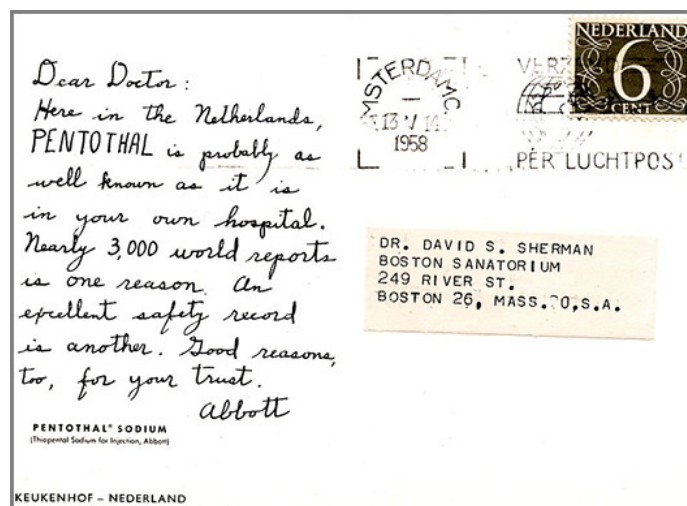 Dear Doctor:
Here in the Netherlands,
PENTOTHAL is probably as
well known as it is
in your own hospital.
Nearly 3,000 world reports
is one reason. An
excellent safety record
is another. Good reasons,
too, for your trust.
Abbott
PENTOTHAL® SODIUM
(Thiopental Sodium for Injection, Abbott)
KEUKENHOF – NEDERLAND
AMSTERDAM C
13 V 14
1958
PER LUCHTPOST
NEDERLAND
6
CENT
DR. DAVID S. SHERMAN
BOSTON SANATORIUM
249 RIVER ST.
BOSTON 26, MASS.